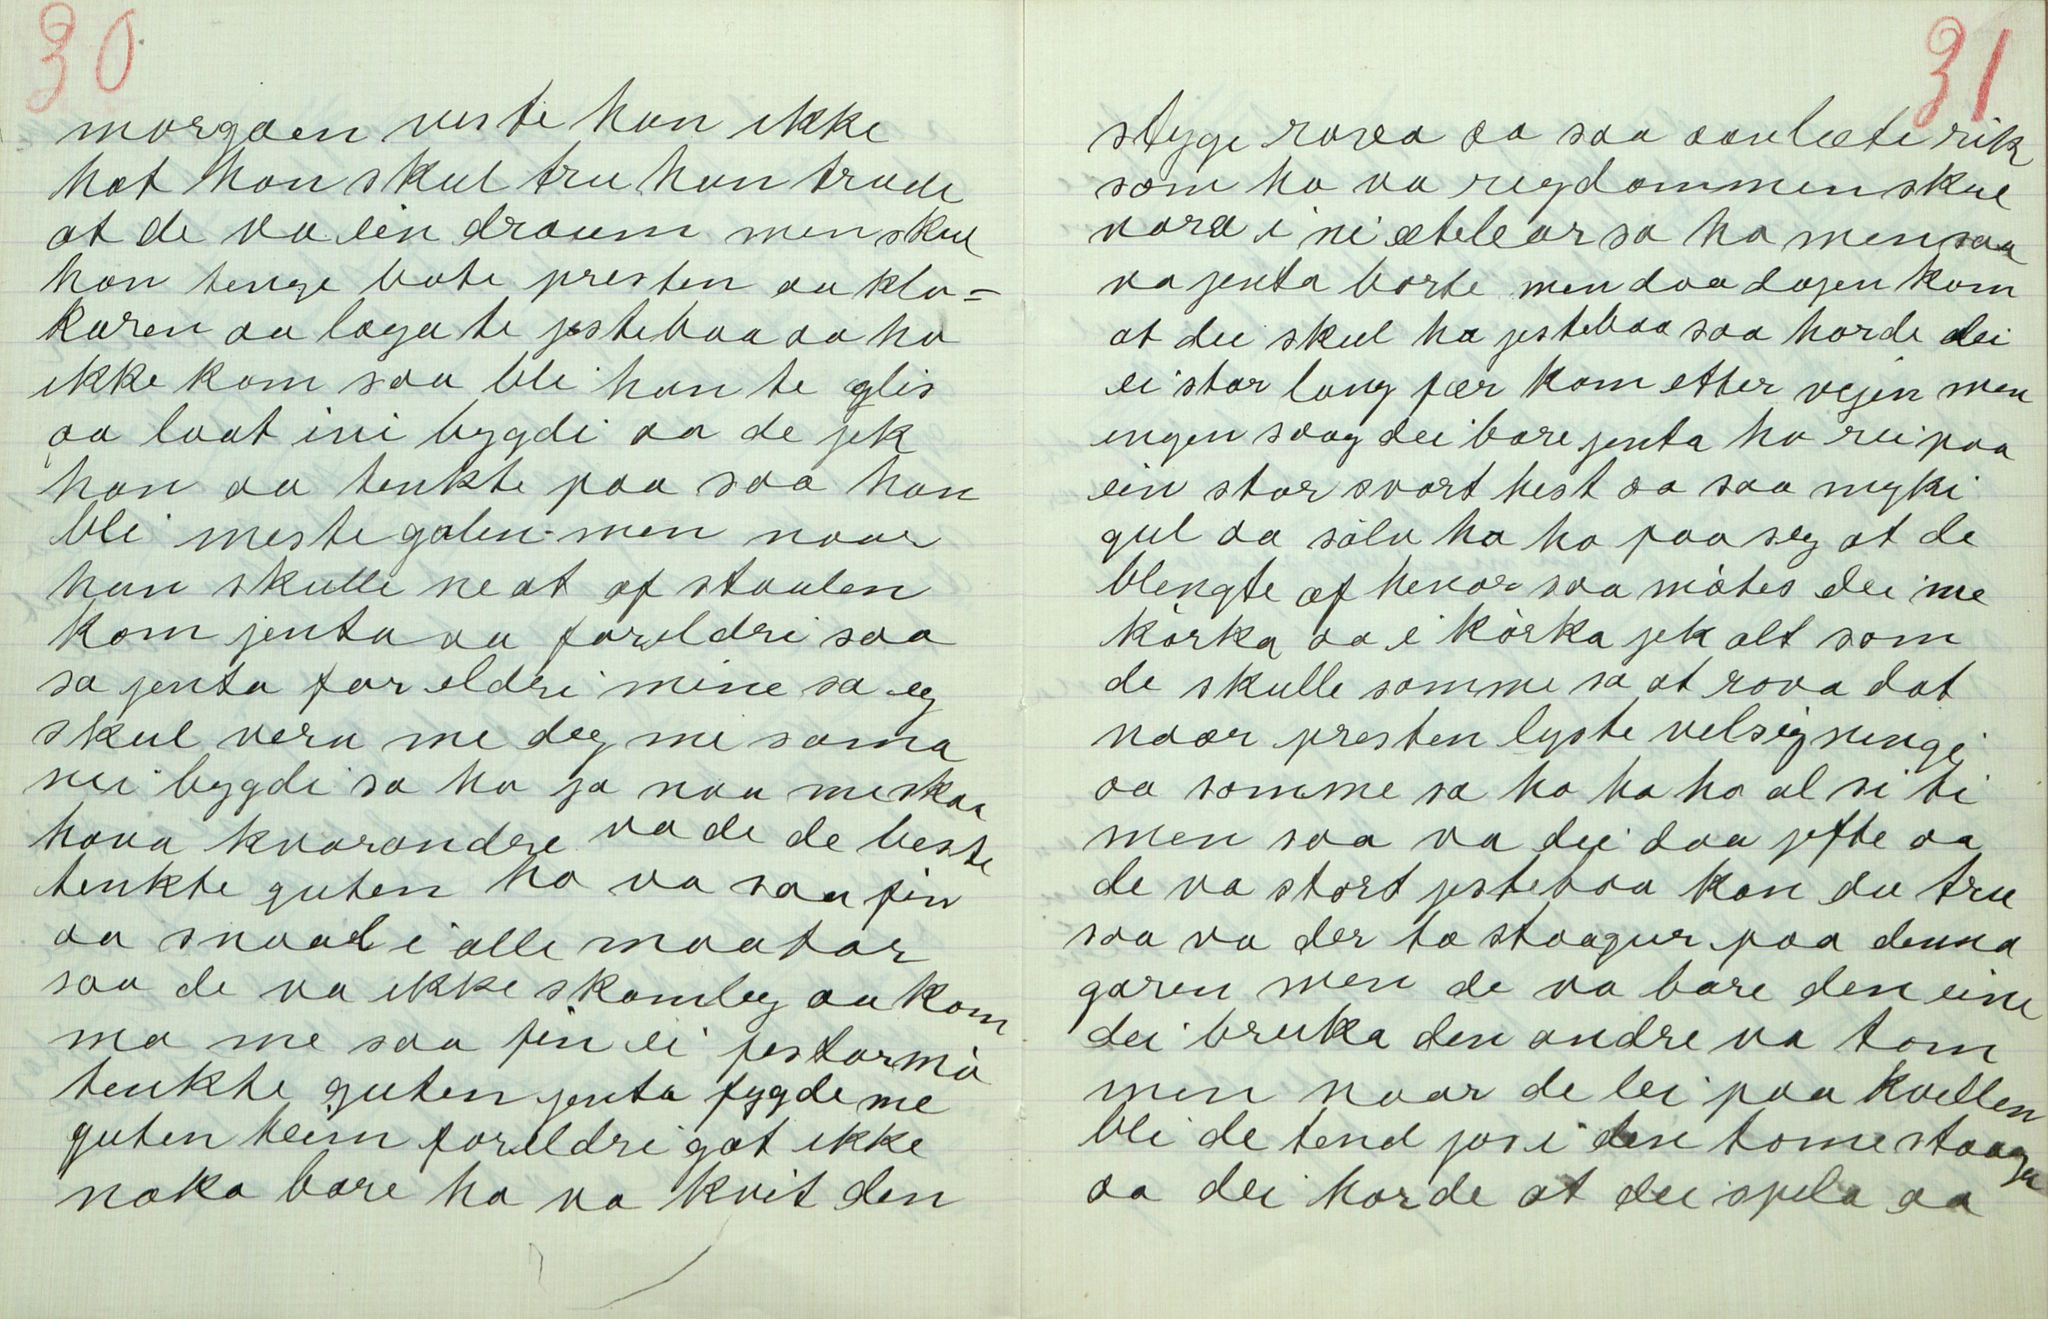 30
morgaen viste han ikke
hat han skul tru han trude
at de va ein draum men skul
han tenge bate presten aa kla=
karen aa laga te jestebaa aa ho
ikke kom saa blei han te glis
aa laat ini bygdi aa de jek
han aa tenkte paa saa han
blei meste galen men naar
han skulle ne at af staulen
kom jenta aa foreldri saa
sa jenta foreldri mine sa eg
skul vera me deg me sama
nei bygdi sa ho ja naa me skaa
hava kvarandre va de de beste
tenkte guten ho va saa fin
aa snaal i alle maatar
saa de va ikke skamleg aa kom
ma me saa fin ei jestarmö
tenkte guten jenta fygde me
guten heim foreldri gat ikke
naka bare ho va kvit den
31
styge rova aa saa aaulæte rik
som ho va rigdommen skul
vara i ni ætelear sa ho men saa
va jenta borte men daa dagen kom
at dei skul ha jestebaa saa horde dei
ei stor lang fær kom etter vejen men
engen saag dei bare jenta ho rei paa
ein stor svart hest aa saa myki
gul aa sölv ha ho paa seg at de
blengte af henar saa mötes dei me
körka aa i körka jek alt som
de skulle somme sa at rova dat
naar presten lyste velsigningi
aa somme sa ho ha ho al si ti
men saa va dei daa jefte aa
de va stort jestebaa kan du tru
saa va der to staagur paa denna
garen men de va bare den eine
dei bruka den andre va tom
men naar de lei paa kvellen
blei de tend jos i den tome staaga
aa dei horde at dei spela aa